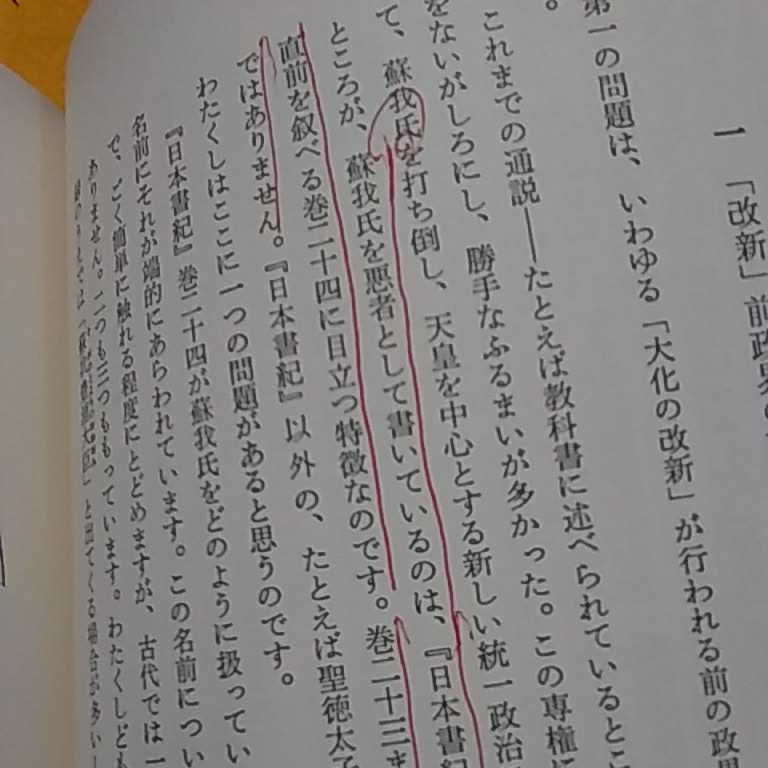 一 「改新」前政界の
第一の問題は、いわゆる「大化の改新」が行われる前の政界
。
これまでの通説――たとえば教科書に述べられているとこ
をないがしろにし、勝手なふるまいが多かった。この専権に
て、蘇我氏を打ち倒し、天皇を中心とする新しい統一政治
ところが、蘇我氏を悪者として書いているのは、『日本書紀
直前を叙べる巻二十四に目立つ特徴なのです。巻二十三ま
ではありません。『日本書紀』以外の、たとえば聖徳太子
わたくしはここに一つの問題があると思うのです。
『日本書紀』巻二十四が蘇我氏をどのように扱ってい
名前にそれが端的にあらわれています。この名前につい
で、ごく簡単に触れる程度にとどめますが、古代では一
ありません。二つも三つももっています。わたくしども
と出てくる場合が多い